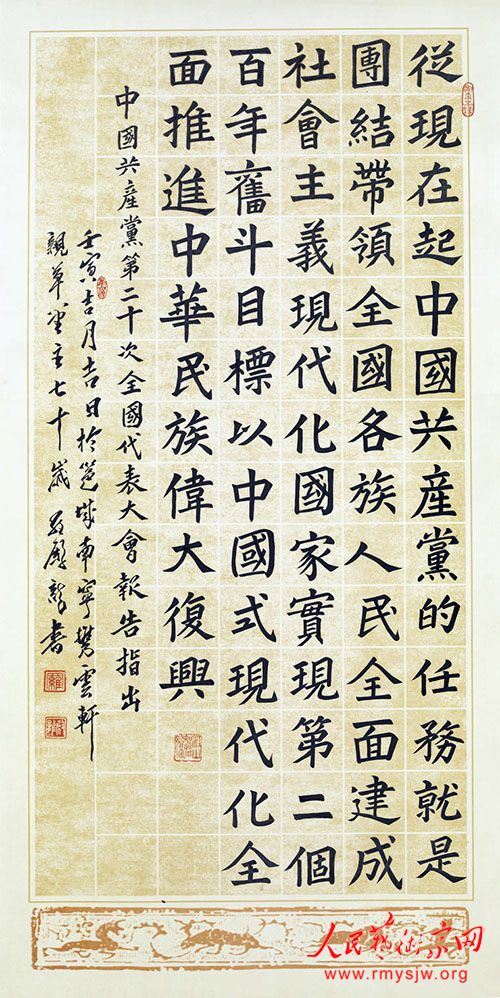 從現在起中國共產黨的任務就是
團結帶領全國各族人民全面建成
社會主義現代化國家實現第二個
百年奮斗目標以中國式現代化全
面推進中華民族偉大復興
中國共產黨第二十次全國代表大會報告指出
壬寅吉月吉日於邕城南寧雲軒
親草堂主七十歲龍書
人民藝術家网
www.rmysjw.org